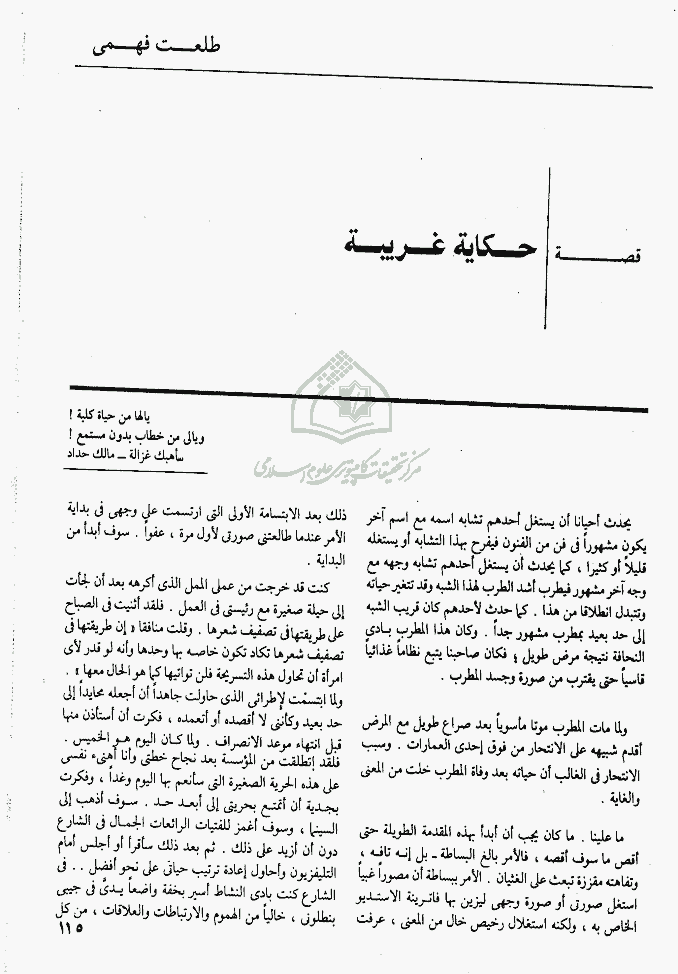 طلعـــت فهـــمى
قصـــــــة
حــكاية غــريبــة
يالها من حياة كلبة !
ويالى من خطاب بدون مستمع !
سأهبك غزالة ــ مالك حداد
مركز تحقيقات كامپيوترى علوم اسلامى
يحدث أحيانا أن يستغل أحدهم تشابه اسمه مع اسم آخر
يكون مشهوراً فى فن من الفنون فيفرح بهذا التشابه أو يستغله
قليلاً أو كثيرا ، كما يحدث أن يستغل أحدهم تشابه وجهه مع
وجه آخر مشهور فيطرب أشد الطرب لهذا الشبه وقد تتغير حياته
وتتبدل انطلاقا من هذا . كما حدث لأحدهم كان قريب الشبه
إلى حد بعيد بمطرب مشهور جداً . وكان هذا المطرب بادى
النحافة نتيجة مرض طويل ؛ فكان صاحبنا يتبع نظاماً غذائياً
قاسياً حتى يقترب من صورة وجسد المطرب .
ولما مات المطرب موتا مأسوياً بعد صراع طويل مع المرض
أقدم شبيهه على الانتحار من فوق إحدى العمارات . وسبب
الانتحار فى الغالب أن حياته بعد وفاة المطرب خلت من المعنى
والغاية .
ما علينا . ما كان يجب أن أبدأ بهذه المقدمة الطويلة حتى
أقص ما سوف أقصه ، فالأمر بالغ البساطة ـ بل إنه تافه ،
وتفاهته مقززة تبعث على الغثيان . الأمر ببساطة أن مصوراً غبياً
استغل صورتى أو صورة وجهى ليزين بها فاترينة الاستديو
الخاص به ، ولكنه استغلال رخيص خال من المعنى ، عرفت
ذلك بعد الابتسامة الأولى التى ارتسمت على وجهى فى بداية
الأمر عندما طالعتنى صورتى لأول مرة ، عفواً . سوف أبدأ من
البداية .
كنت قد خرجت من عملى الممل الذى أكرهه بعد أن لجأت
إلى حيلة صغيرة مع رئيستى فى العمل . فلقد أثنيت فى الصباح
على طريقتها فى تصفيف شعرها . وقلت منافقا « إن طريقتها فى
تصفيف شعرها تكاد تكون خاصه بها وحدها وأنه لو قدر لأى
امرأة أن تحاول هذه التسريحة فلن تواتيها كما هو الحال معها » .
ولما ابتسمت لإطرائى الذى حاولت جاهداً أن أجعله محايداً إلى
حد بعيد وكأننى لا أقصده أو أتعمده ، فكرت أن أستأذن منها
قبل انتهاء موعد الانصراف . ولما كان اليوم هو الخميس .
فلقد إنطلقت من المؤسسة بعد نجاح خطتى وأنا أهنىء نفسى
على هذه الحرية الصغيرة التى سأنعم بها اليوم وغداً ، وفكرت
بجدية أن أتمتع بحريتى إلى أبعد حد . سوف أذهب إلى
السينما ، وسوف أغمز للفتيات الرائعات الجمال فى الشارع
دون أن أزيد على ذلك . ثم بعد ذلك سأقرأ أو أجلس أمام
التليفزيون وأحاول إعادة ترتيب حياتى على نحو أفضل . . فى
الشارع كنت بادى النشاط أسير بخفة واضعاً يدىّ فى جيبى
بنطلونى ، خالياً من الهموم والارتباطات والعلاقات ، من كل
١١٥